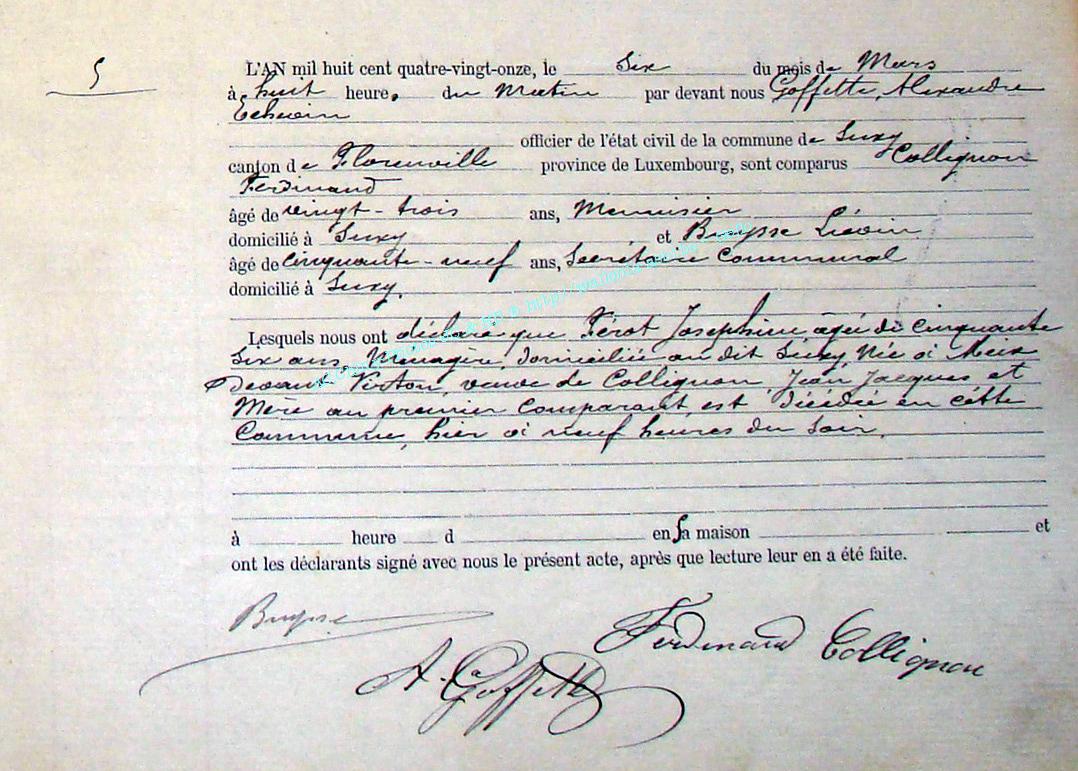 5
L'AN mil huit cent quatre-vingt-onze, le six du mois de Mars
à huit heure. du Matin par devant nous Goffette, Alexandre
Echevin
officier de l'état civil de la commune de Suxy
canton de Florenville province de Luxembourg, sont comparus Collignon
Ferdinand
âgé de vingt-trois ans, Menuisier
domicilié à Suxy et Buysse Liévin
âgé de cinquante-neuf ans, Secrétaire Communal
domicilié à Suxy.
Lesquels nous ont déclaré que Férot Joséphine âgée de cinquante
Six ans, Menagère, domiciliée au dit Suxy Née à Meix
Devant Virton, veuve de Collignon, Jean Jacques et
Mère au premier Comparant, est décédée en cette
Commune, hier à neuf heures du soir.
à heure d en sa maison et
ont les déclarants signé avec nous le présent acte, après que lecture leur en a été faite.
Buysse
Ferdinand Collignon
A. Goffette